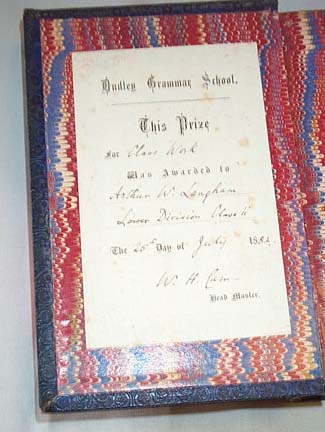 Dudley Grammar School.
This Prize
For Class Work
Was Awarded to
Arthur W. Langham
Lower Division Class II
The 25th Day of July 1882.
W. H. Cam
Head Master.